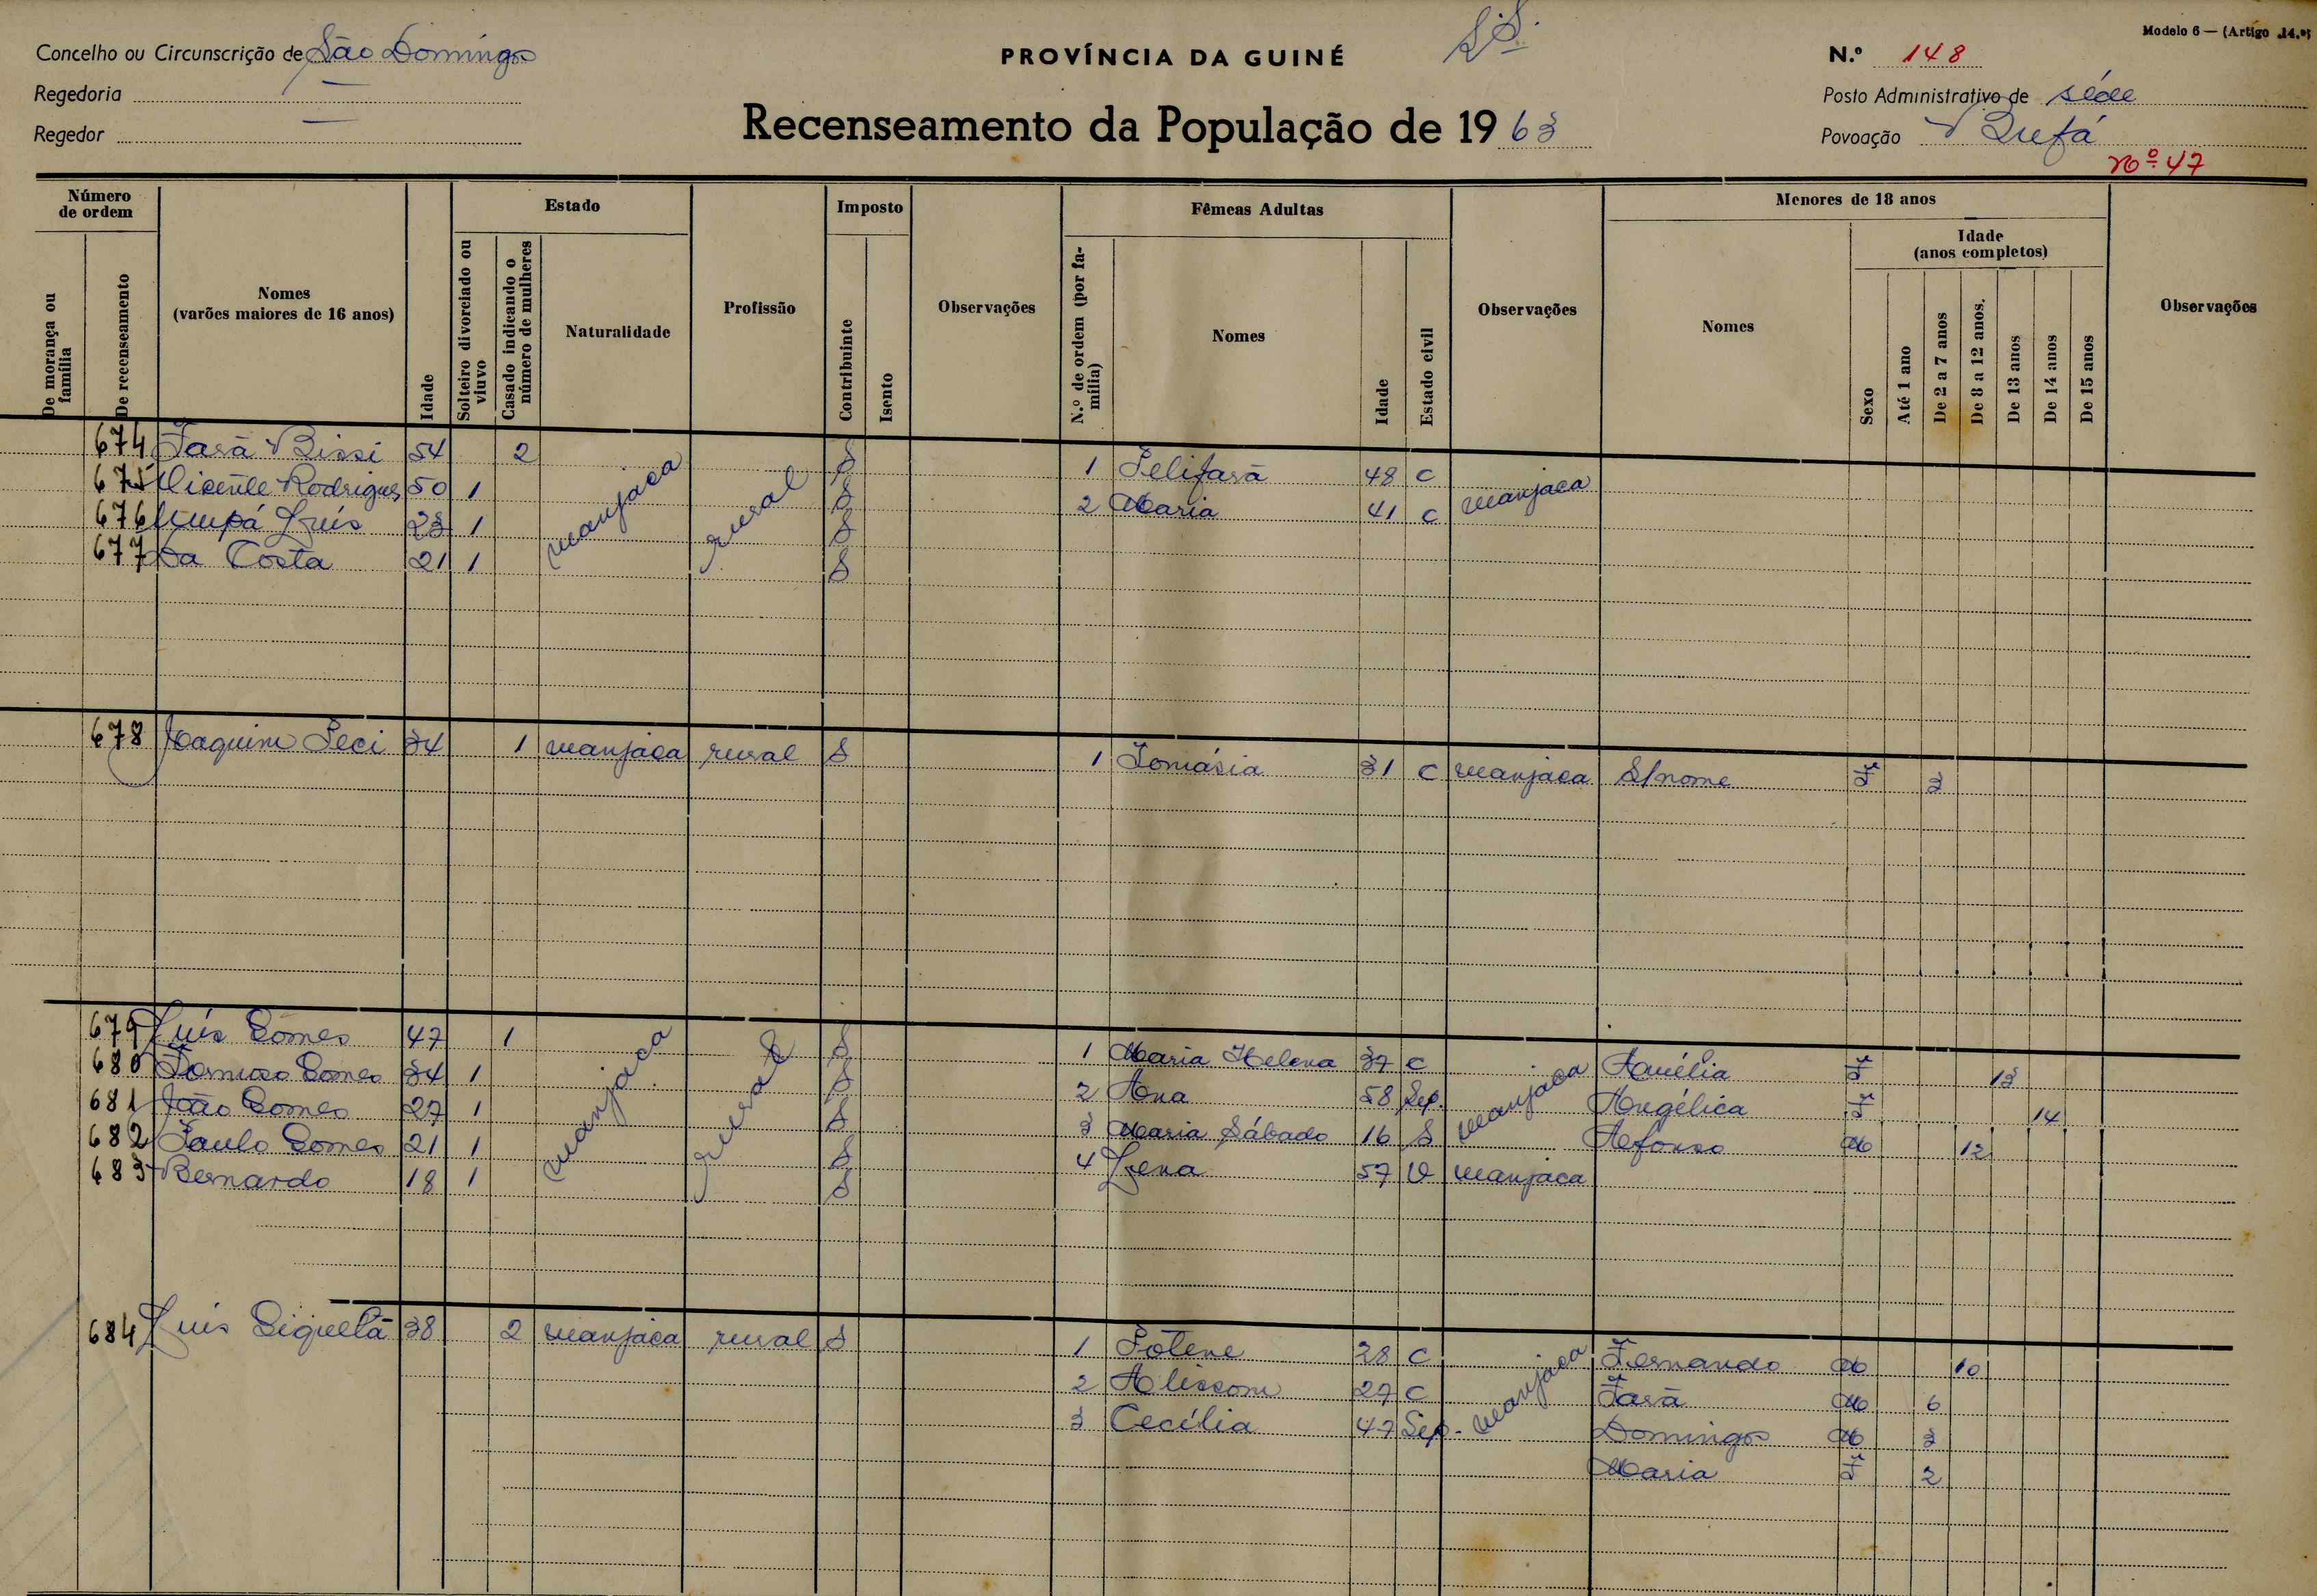 Modelo 6 — (Artigo 14.º)
Concelho ou Circunscrição de São Domingos
PROVÍNCIA DA GUINÉ
N.º 148
Regedoria —
Posto Administrativo de séde
Regedor —
Recenseamento da População de 1963
Povoação Bufá
nº 47
Número de ordem
De morança ou família
De recenseamento
Nomes (varões maiores de 16 anos)
Idade
Estado
Solteiro divorciado ou viuvo
Casado indicando o número de mulheres
Naturalidade
Profissão
Imposto
Contribuinte
Isento
Observações
Fêmeas Adultas
N.º de ordem (por família)
Nomes
Idade
Estado civil
Observações
Menores de 18 anos
Nomes
Sexo
Idade (anos completos)
Até 1 ano
De 2 a 7 anos
De 8 a 12 anos.
De 13 anos
De 14 anos
De 15 anos
Observações
674 Fasã Bissi 54 2 manjaca rural S 1 48 C manjaca
675 Vicente Rodrigues 50 1 S 2 Maria 41 C
676 Umpá Luís 23 1 S
677 Da Costa 21 1 S
678 Joaquim Peci 34 1 manjaca rural S 1 Tomásia 31 C manjaca S/nome F 3
679 Luís Gomes 47 1 manjaca rural S 1 Maria Helena 37 C manjaca Amélia F 13
680 Formoso Gomes 34 1 S 2 Ana 58 Sep. Angélica F 14
681 João Gomes 27 1 S 3 Maria Sábado 16 S Afonso M 12
682 Paulo Gomes 21 1 S 4 Lena 57 V manjaca
683 Bernardo 18 1 S
684 Luís 38 2 manjaca rural S 1 28 C manjaca Fernando M 10
2 Alissom 27 C Fasã M 6
3 Cecília 47 Sep. Domingos M 3
Maria F 2